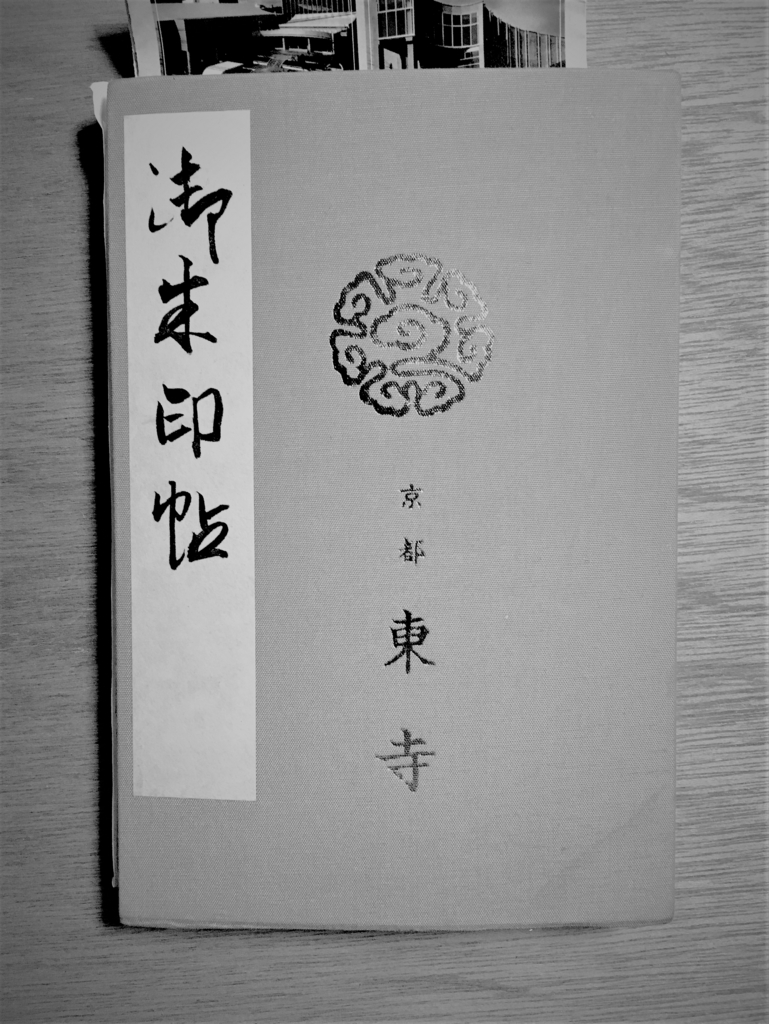 御朱印帖
京都
東寺